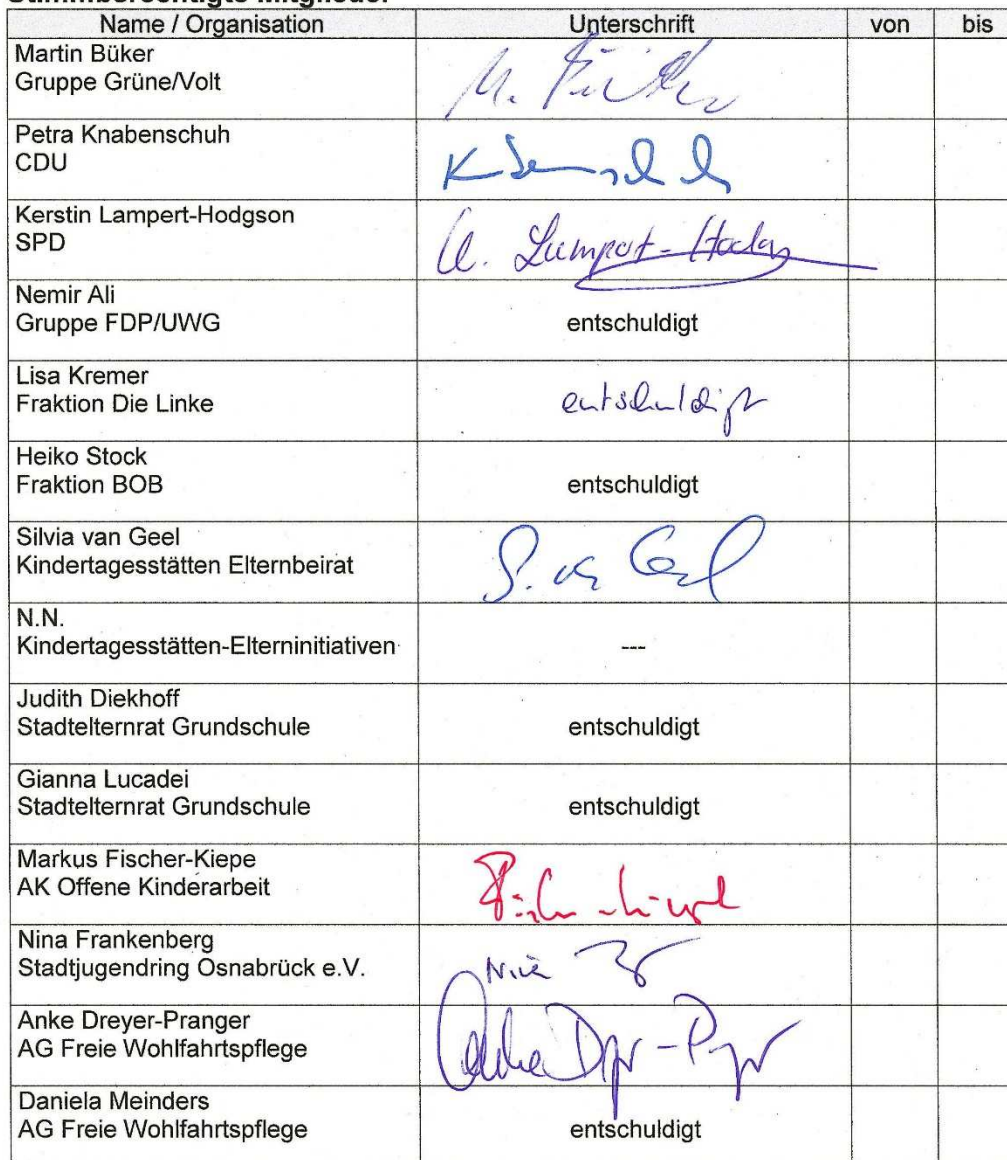 Stimmberechtigte Mitglieder
Name / Organisation Unterschrift von bis
Martin Büker
Gruppe Grüne/Volt
M.
Petra Knabenschuh
CDU
Kerstin Lampert-Hodgson
SPD
Lampert-
Nemir Ali
Gruppe FDP/UWG entschuldigt
Lisa Kremer
Fraktion Die Linke entschuldigt
Heiko Stock
Fraktion BOB entschuldigt
Silvia van Geel
Kindertagesstätten Elternbeirat
S. van Geel
N.N.
Kindertagesstätten-Elterninitiativen ---
Judith Diekhoff
Stadtelternrat Grundschule entschuldigt
Gianna Lucadei
Stadtelternrat Grundschule entschuldigt
Markus Fischer-Kiepe
AK Offene Kinderarbeit
Nina Frankenberg
Stadtjugendring Osnabrück e.V.
Nina
Anke Dreyer-Pranger
AG Freie Wohlfahrtspflege
Anke
Daniela Meinders
AG Freie Wohlfahrtspflege entschuldigt